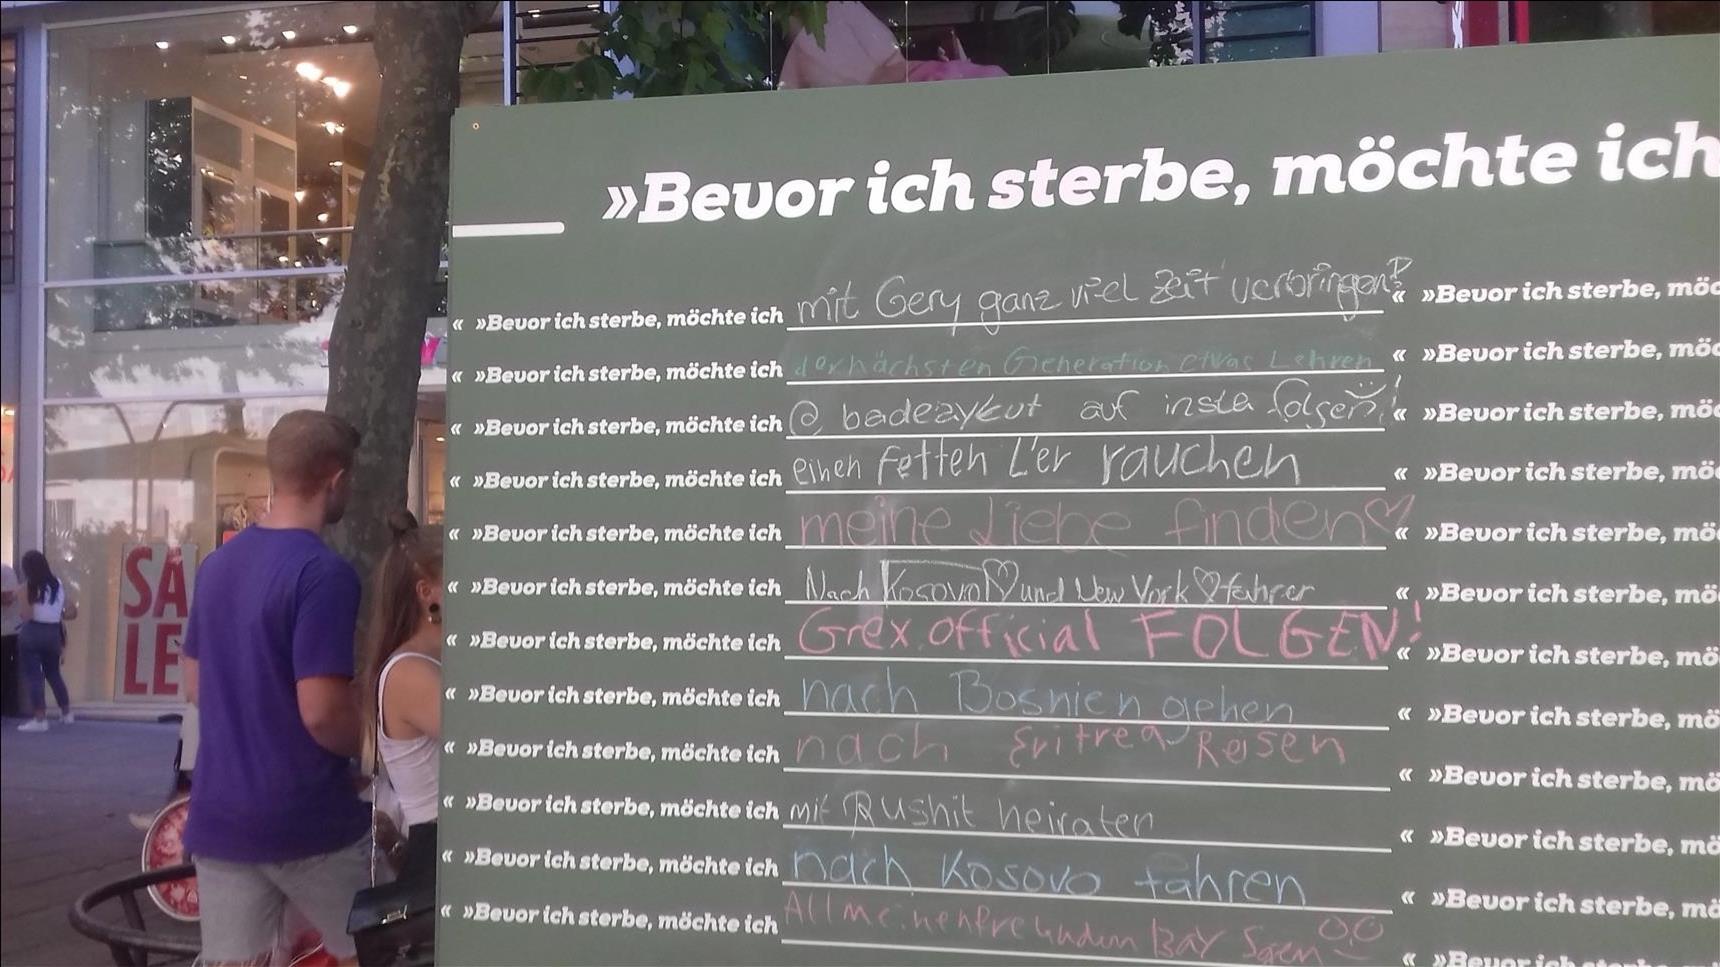 »Bevor ich sterbe, möchte ich
« »Bevor ich sterbe, möchte ich mit Gery ganz viel Zeit verbringen! « »Bevor ich sterbe, möc
« »Bevor ich sterbe, möchte ich der nächsten Generation etwas Lehren « »Bevor ich sterbe, möc
« »Bevor ich sterbe, möchte ich @badezykut auf insta folgen! « »Bevor ich sterbe, möc
« »Bevor ich sterbe, möchte ich einen fetten L'er rauchen « »Bevor ich sterbe, möc
« »Bevor ich sterbe, möchte ich meine Liebe finden♡ « »Bevor ich sterbe, mö
« »Bevor ich sterbe, möchte ich Nach Kosovo♡ und New York♡ fahrer « »Bevor ich sterbe, mö
« »Bevor ich sterbe, möchte ich Grex.official FOLGEN! « »Bevor ich sterbe, mö
« »Bevor ich sterbe, möchte ich nach Bosnien gehen « »Bevor ich sterbe, mö
« »Bevor ich sterbe, möchte ich nach Eritrea Reisen « »Bevor ich sterbe, mö
« »Bevor ich sterbe, möchte ich mit Rushit heiraten « »Bevor ich sterbe, mö
« »Bevor ich sterbe, möchte ich nach Kosovo fahren « »Bevor ich sterbe, mö
« »Bevor ich sterbe, möchte ich All meinen BAY Sagen « »Bevor ich sterbe, mö
SA
LE